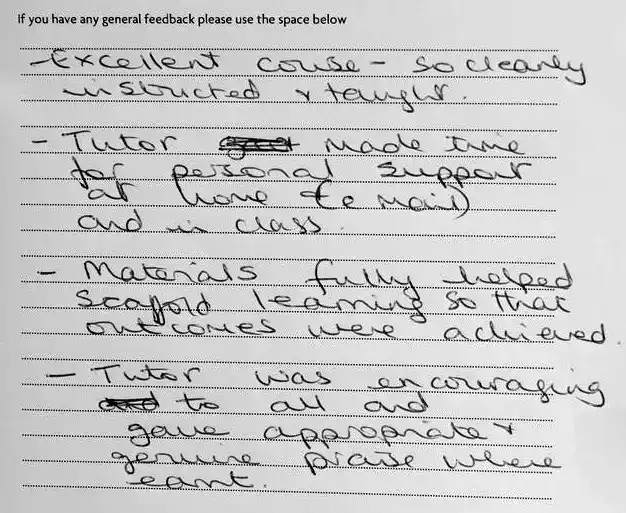 If you have any general feedback please use the space below
- Excellent couse - so clearly
instructed & taught.
- Tutor made time
for personal support
at home (e mail)
and in class.
- Materials fully helped
scaffold learning so that
outcomes were achieved.
- Tutor was encouraging
to all and
gave appropriate &
genuine praise where
earnt.